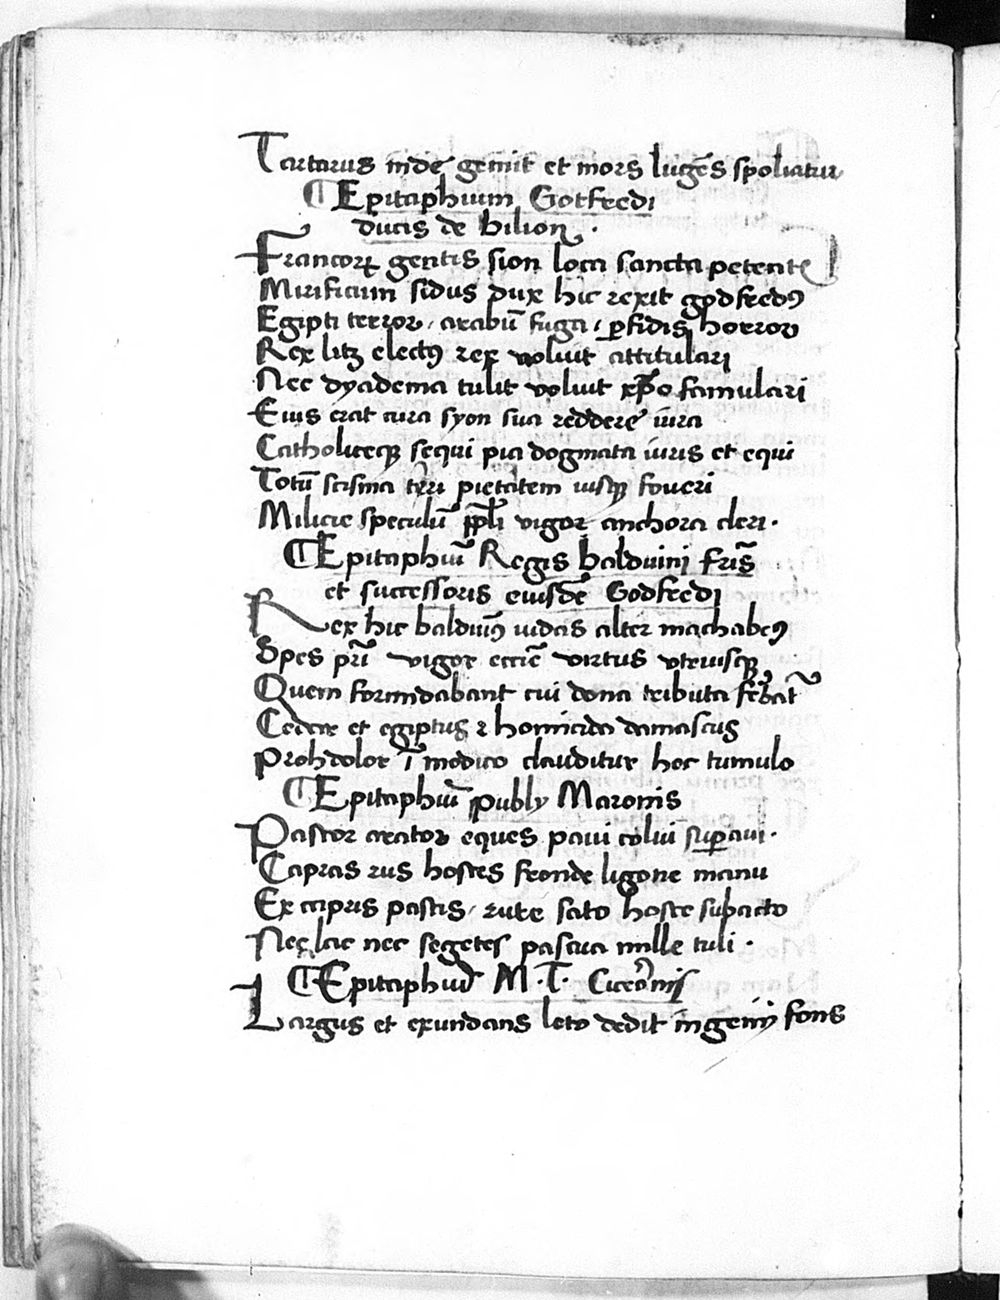 Tartarus inde gemit et mors lugēs spoliatur
¶ Epitaphium Gotfredi
ducis de bilion.
Francoꝝ gentis sion loca sancta petentis
Mirificum sidus dux hic rexit godfredꝰ
Egipti terror, arabū fuga, ꝑfidis horror
Rex licꝫ electꝰ rex voluit attitulari
Nec dyadema tulit voluit xp̄o famulari
Eius erat cura syon sua reddere iura
Catholiceqꝫ sequi pia dogmata iuris et equi
Totū scisma teri pietatem iusqꝫ foueri
Milicie speculū ppl̄i vigor anchora cleri.
¶ Epitaphiū Regis balduini fris̄
et successoris eiusdē Godfredi
Rex hic balduinꝰ iudas alter machabeꝰ
Spes pr̄i vigor eccīe virtus vtriusqꝫ
Quem formidabant cui dona tributa fer̄bāt
Cedar et egiptus ⁊ homicida damascus
Prohdolor ī modico clauditur hoc tumulo
¶ Epitaphiū publij Maronis
Pastor arator eques paui colui suꝑaui.
Capras rus hostes fronde ligone manu
Ex capris pastis, rure sato hoste subacto
Nec lac nec segetes pascua mille tuli.
¶ Epitaphiū M. T. Cicerōnis
Largus et exundans leto dedit ingenij fons